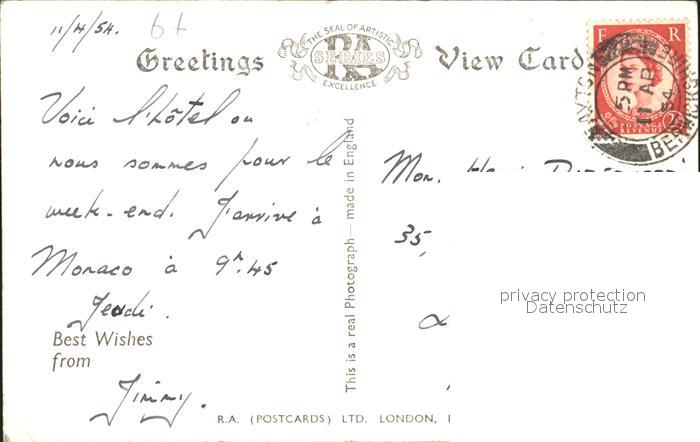 11/4/54.
Greetings
THE SEAL OF ARTISTIC
RA
SERIES
EXCELLENCE
View Card
F R
POSTAGE
REVENUE
5 PM
11 AP
54
Voici l'hôtel ou
nous sommes pour le
week-end. J'arrive à
Monaco à 9h.45
Jeudi.
Best Wishes
from
Jimmy.
This is a real Photograph — made in England
Mon.
35,
privacy protection
Datenschutz
R.A. (POSTCARDS) LTD. LONDON,